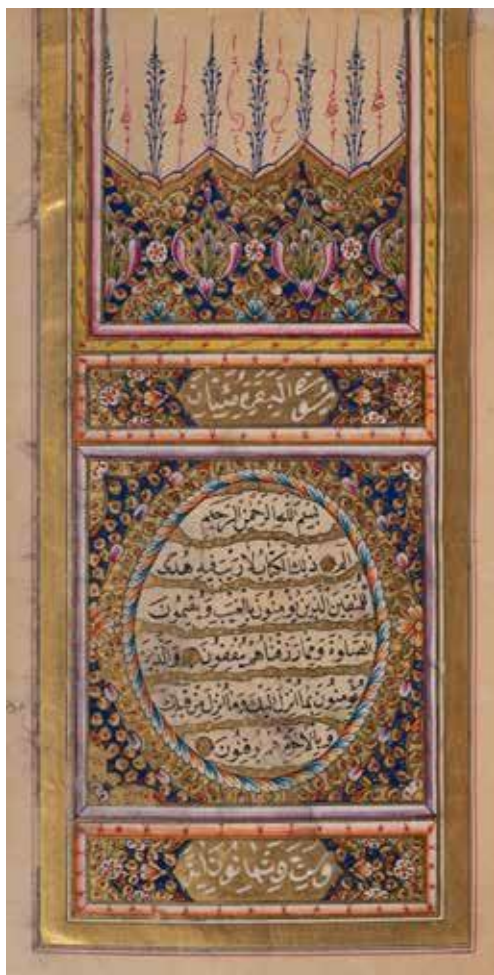 سورة البقرة مئتان
بسم الله الرحمن الرحيم
الم ذلك الكتاب لا ريب فيه هدى
للمتقين الذين يؤمنون بالغيب ويقيمون
الصلوة ومما رزقناهم ينفقون والذين
يؤمنون بما انزل اليك وما انزل من قبلك
وبالاخرة هم يوقنون
وست وثمانون اية